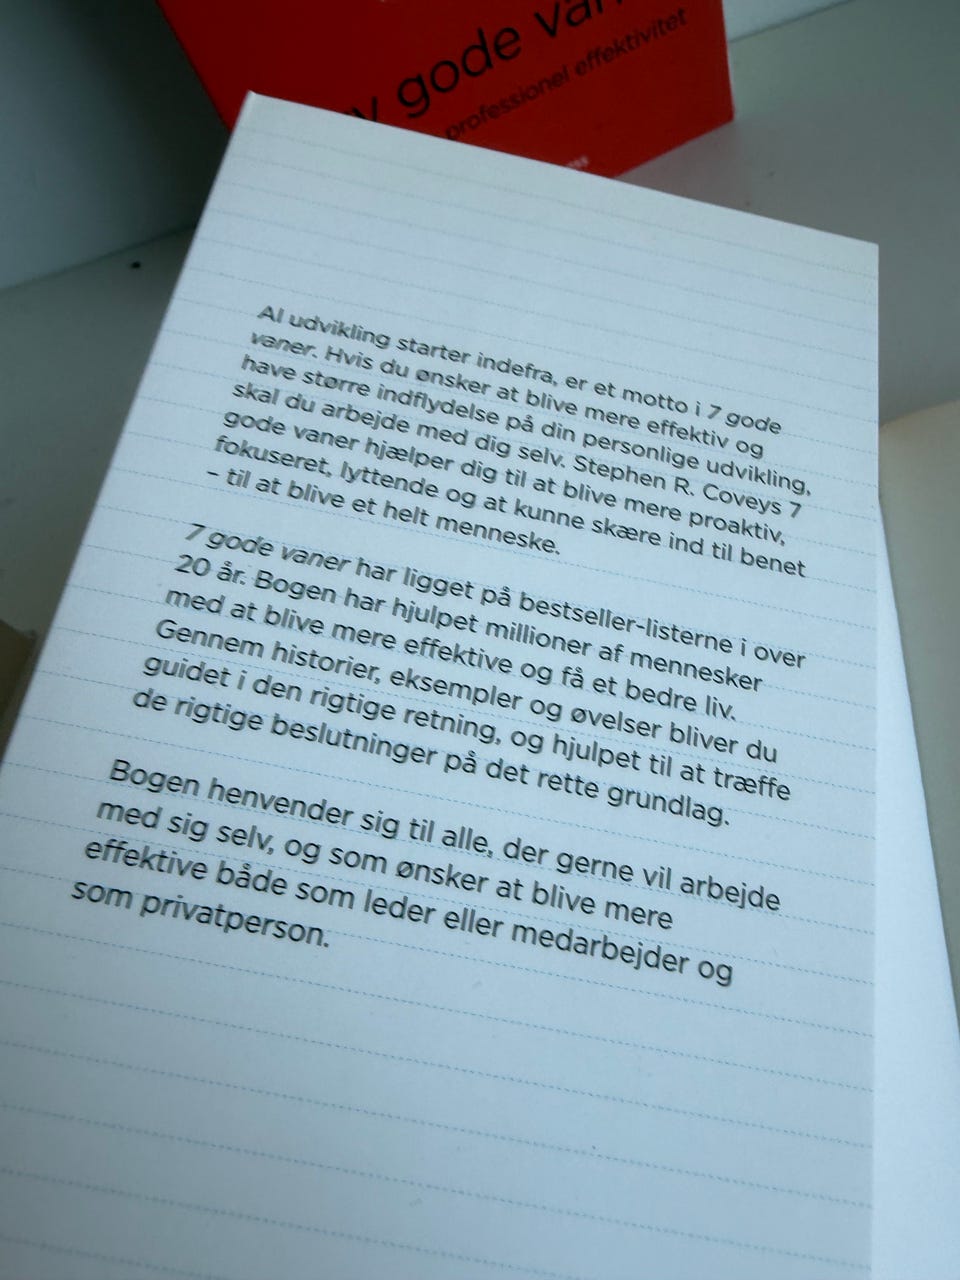 gode
professionel effektivitet
Al udvikling starter indefra, er et motto i 7 gode
vaner. Hvis du ønsker at blive mere effektiv og
have større indflydelse på din personlige udvikling,
skal du arbejde med dig selv. Stephen R. Coveys 7
gode vaner hjælper dig til at blive mere proaktiv,
fokuseret, lyttende og at kunne skære ind til benet
– til at blive et helt menneske.
7 gode vaner har ligget på bestseller-listerne i over
20 år. Bogen har hjulpet millioner af mennesker
med at blive mere effektive og få et bedre liv.
Gennem historier, eksempler og øvelser bliver du
guidet i den rigtige retning, og hjulpet til at træffe
de rigtige beslutninger på det rette grundlag.
Bogen henvender sig til alle, der gerne vil arbejde
med sig selv, og som ønsker at blive mere
effektive både som leder eller medarbejder og
som privatperson.